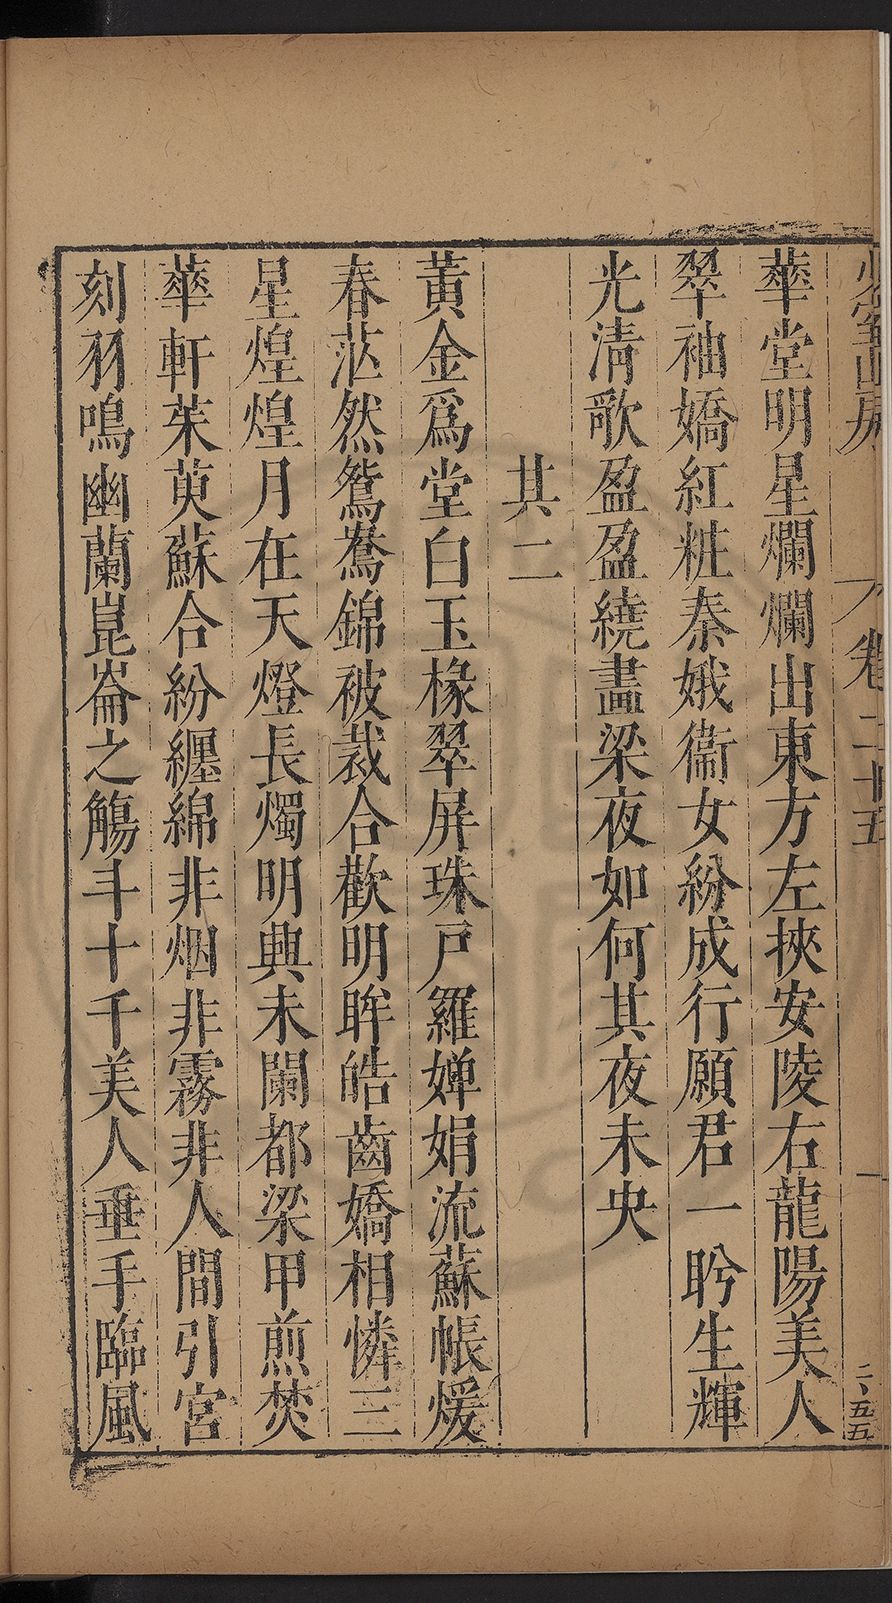 卷二十五
一
二、五五
華堂明星爛爛出東方左挾安陵右龍陽美人
翠袖嬌紅粧秦娥衞女紛成行願君一盻生輝
光淸歌盈盈繞畫梁夜如何其夜未央
其二
黃金爲堂白玉椽翠屏珠戸羅嬋娟流蘇帳煖
春茫然鴛鴦錦被裁合歡明眸皓齒嬌相憐三
星煌煌月在天燈長燭明興未闌都梁甲煎焚
華軒茱萸蘇合紛纒綿非烟非霧非人間引宮
刻羽鳴幽蘭崑崙之觴斗十千美人垂手臨風